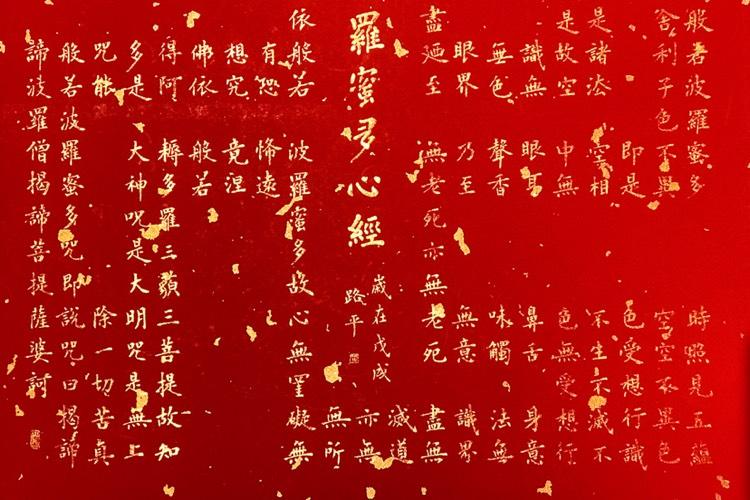 般若波羅蜜多 時照見五蘊
舍利子色不異 空空不異色
即是 色受想行識
是諸法 空相 不生不滅不
是故空 中無 色無受想行
識無 眼耳 鼻舌 身意
無色 聲香 味觸 法無
眼界 乃至 無意 識界
盡廼至 無老死亦無老死 盡無
滅道
羅蜜多心經
歲在戊戌
路平
亦無
無所
依般若 波羅蜜多故心無罣礙無
有恐 怖遠
想究 竟涅
佛依 般若
得阿 耨多羅三藐三菩提故知
多是 大神呪是大明呪是無上
呪能 除一切苦真
般若波羅蜜多呪即說呪曰揭諦
諦波羅僧揭諦菩提薩婆訶